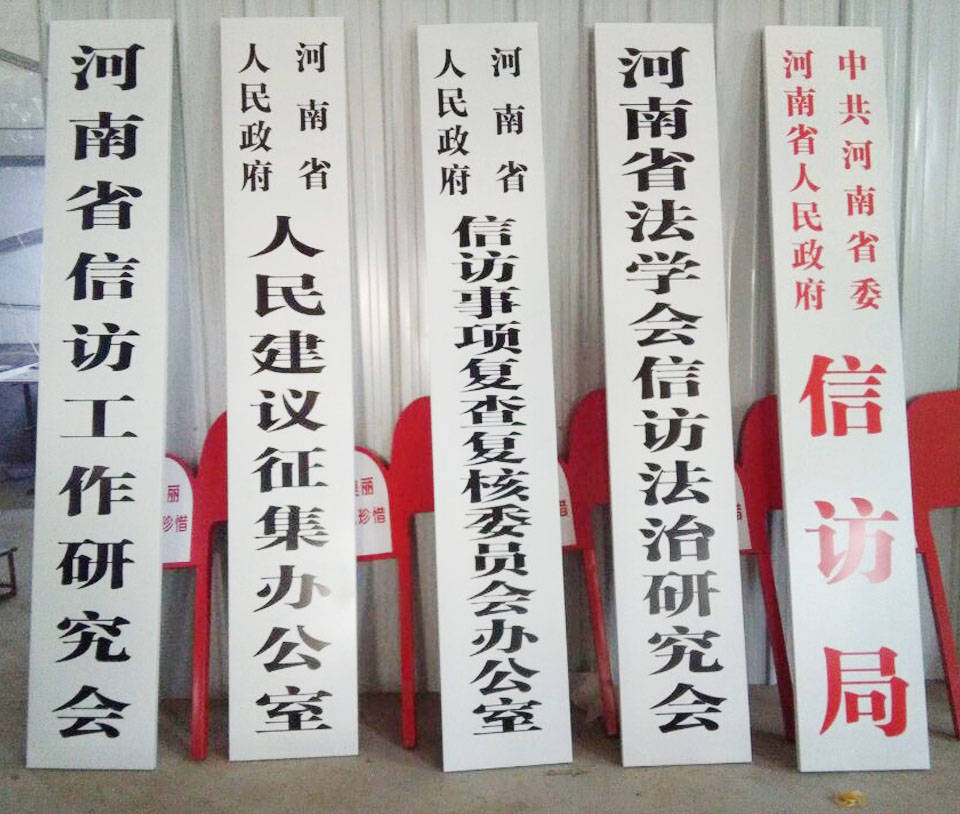 河南省信访工作研究会
河南省
人民政府
人民建议征集办公室
河南省
人民政府
信访事项复查复核委员会办公室
河南省法学会信访法治研究会
中共河南省委
河南省人民政府
信访局
丽
珍惜
丽
珍惜
惜
惜